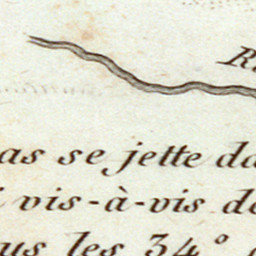 R
as se jette da
vis-à-vis de
us les 34°